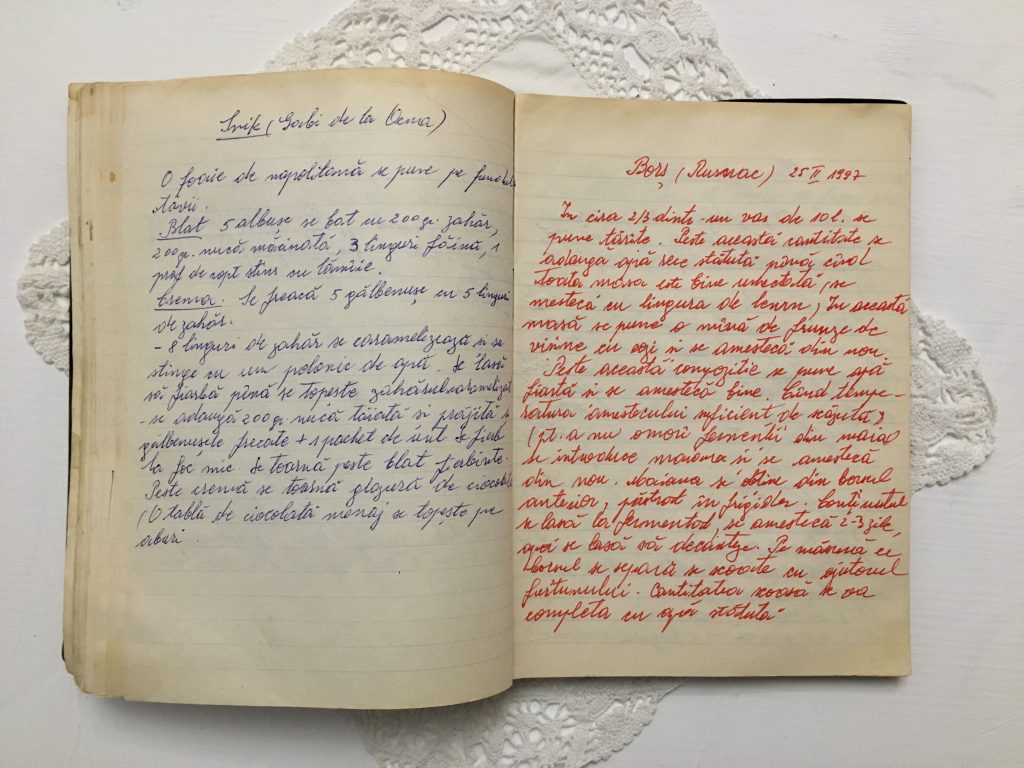 Snik (Gabi de la Ocna)
O foaie de napolitană se pune pe fundul
tăvii.
Blat 5 albușe se bat cu 200 gr. zahăr,
200 gr. nucă măcinată, 3 linguri făină, 1
praf de copt stins cu lămîie.
Crema. Se freacă 5 gălbenușe cu 5 linguri
de zahăr.
- 8 linguri de zahăr se caramelizează și se
stinge cu un polonic de apă. Se lasă
să fiarbă pînă se topește zahărul caramelizat
- se adaugă 200 gr. nucă tăiată și prăjită
gălbenușele frecate + 1 pachet de unt. Se fierb
la foc mic. Se toarnă peste blat fierbinte.
Peste cremă se toarnă glazură de ciocolată
(O tablă de ciocolată menaj se topește pe
aburi.
Borș (Rusnac) 25 II 1997
In cira 2/3 dintr-un vas de 10 l. se
pune tărîțe. Peste această cantitate se
adauga apă rece stătută pînă cînd
toată masa este bine umectată, (se
mestecă cu lingura de lemn) In această
masă se pune o mînă de frunze de
visine cu ogi si se amestecă din nou.
Peste această compoziție se pune apă
fiartă si se amestecă bine. Cînd tempe-
ratura amestecului suficient de scăzută,
(pt. a nu omorî fermenții din maia)
se introduce maiaua si se amestecă
din nou. Maiaua se obține din borsul
anterior, păstrat în frigider. Conținutul
se lasă la fermentat, se amestecă 2-3 zile,
apoi se lasă să decanteze. Pe măsură ce
borsul se separă se scoate cu ajutorul
furtunului. Cantitatea scoasă se va
completa cu apă stătută